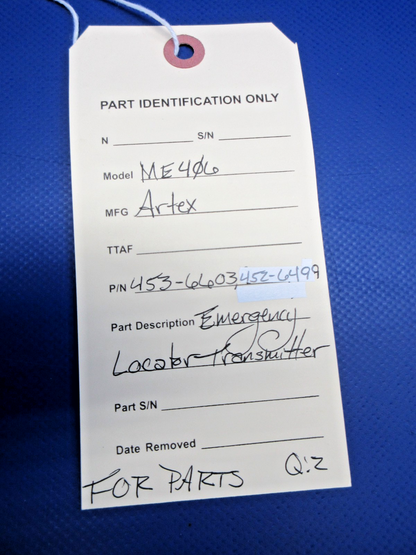 PART IDENTIFICATION ONLY
N S/N
Model ME406
MFG Artex
TTAF
P/N 453-6603, 452-6499
Part Description Emergency
Locator Transmitter
Part S/N
Date Removed
FOR PARTS Q:2